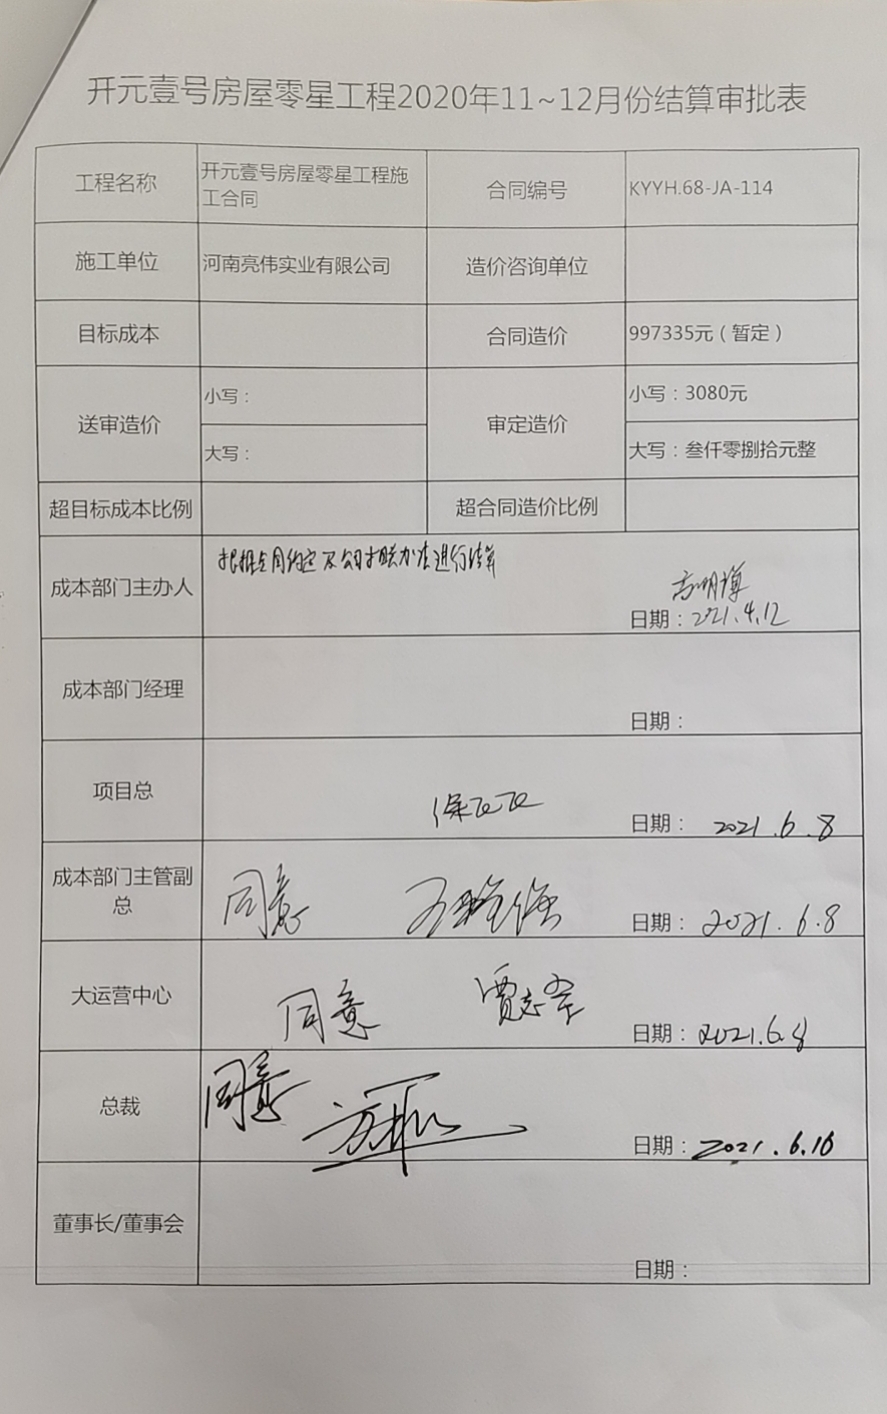 开元壹号房屋零星工程2020年11~12月份结算审批表
工程名称
开元壹号房屋零星工程施
工合同
合同编号
KYYH.68-JA-114
施工单位
河南亮伟实业有限公司
造价咨询单位
目标成本
合同造价
997335元（暂定）
送审造价
小写：
大写：
审定造价
小写：3080元
大写：叁仟零捌拾元整
超目标成本比例
超合同造价比例
成本部门主办人
根据合同约定及公司相关办法进行结算
日期：2021.4.12
成本部门经理
日期：
项目总
日期：2021.6.8
成本部门主管副
总
同意
日期：2021.6.8
大运营中心
同意
日期：2021.6.8
总裁
同意
日期：2021.6.10
董事长/董事会
日期：